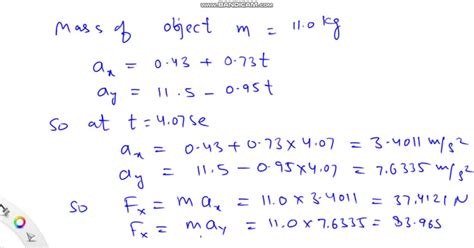 www.BANDICAM.com
Mass of object m = 11.0 kg
ax = 0.43 + 0.73t
ay = 11.5 - 0.95t
So at t = 4.07se
ax = 0.43 + 0.73 x 4.07 = 3.4011 m/s²
ay = 11.5 - 0.95 x 4.07 = 7.6335 m/s²
So Fx = m ax = 11.0 x 3.4011 = 37.4121 N
Fx = m ay = 11.0 x 7.6335 = 83.965